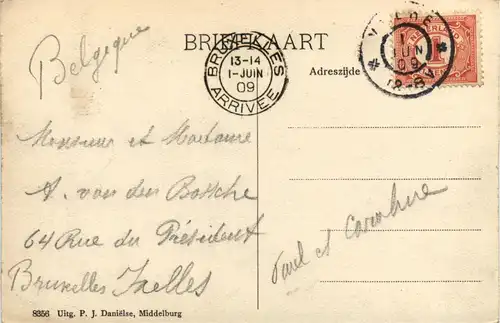 Belgique
BRIEFKAART
BRUXELLES
13-14
1-JUIN
09
ARRIVEE
1
JUN
09
NEDERLAND
1
Adreszijde
Monsieur et Madame
A. van den Bossche
64 Rue du Président
Bruxelles Ixelles
Paul et
8356 Uitg. P. J. Daniëlse, Middelburg